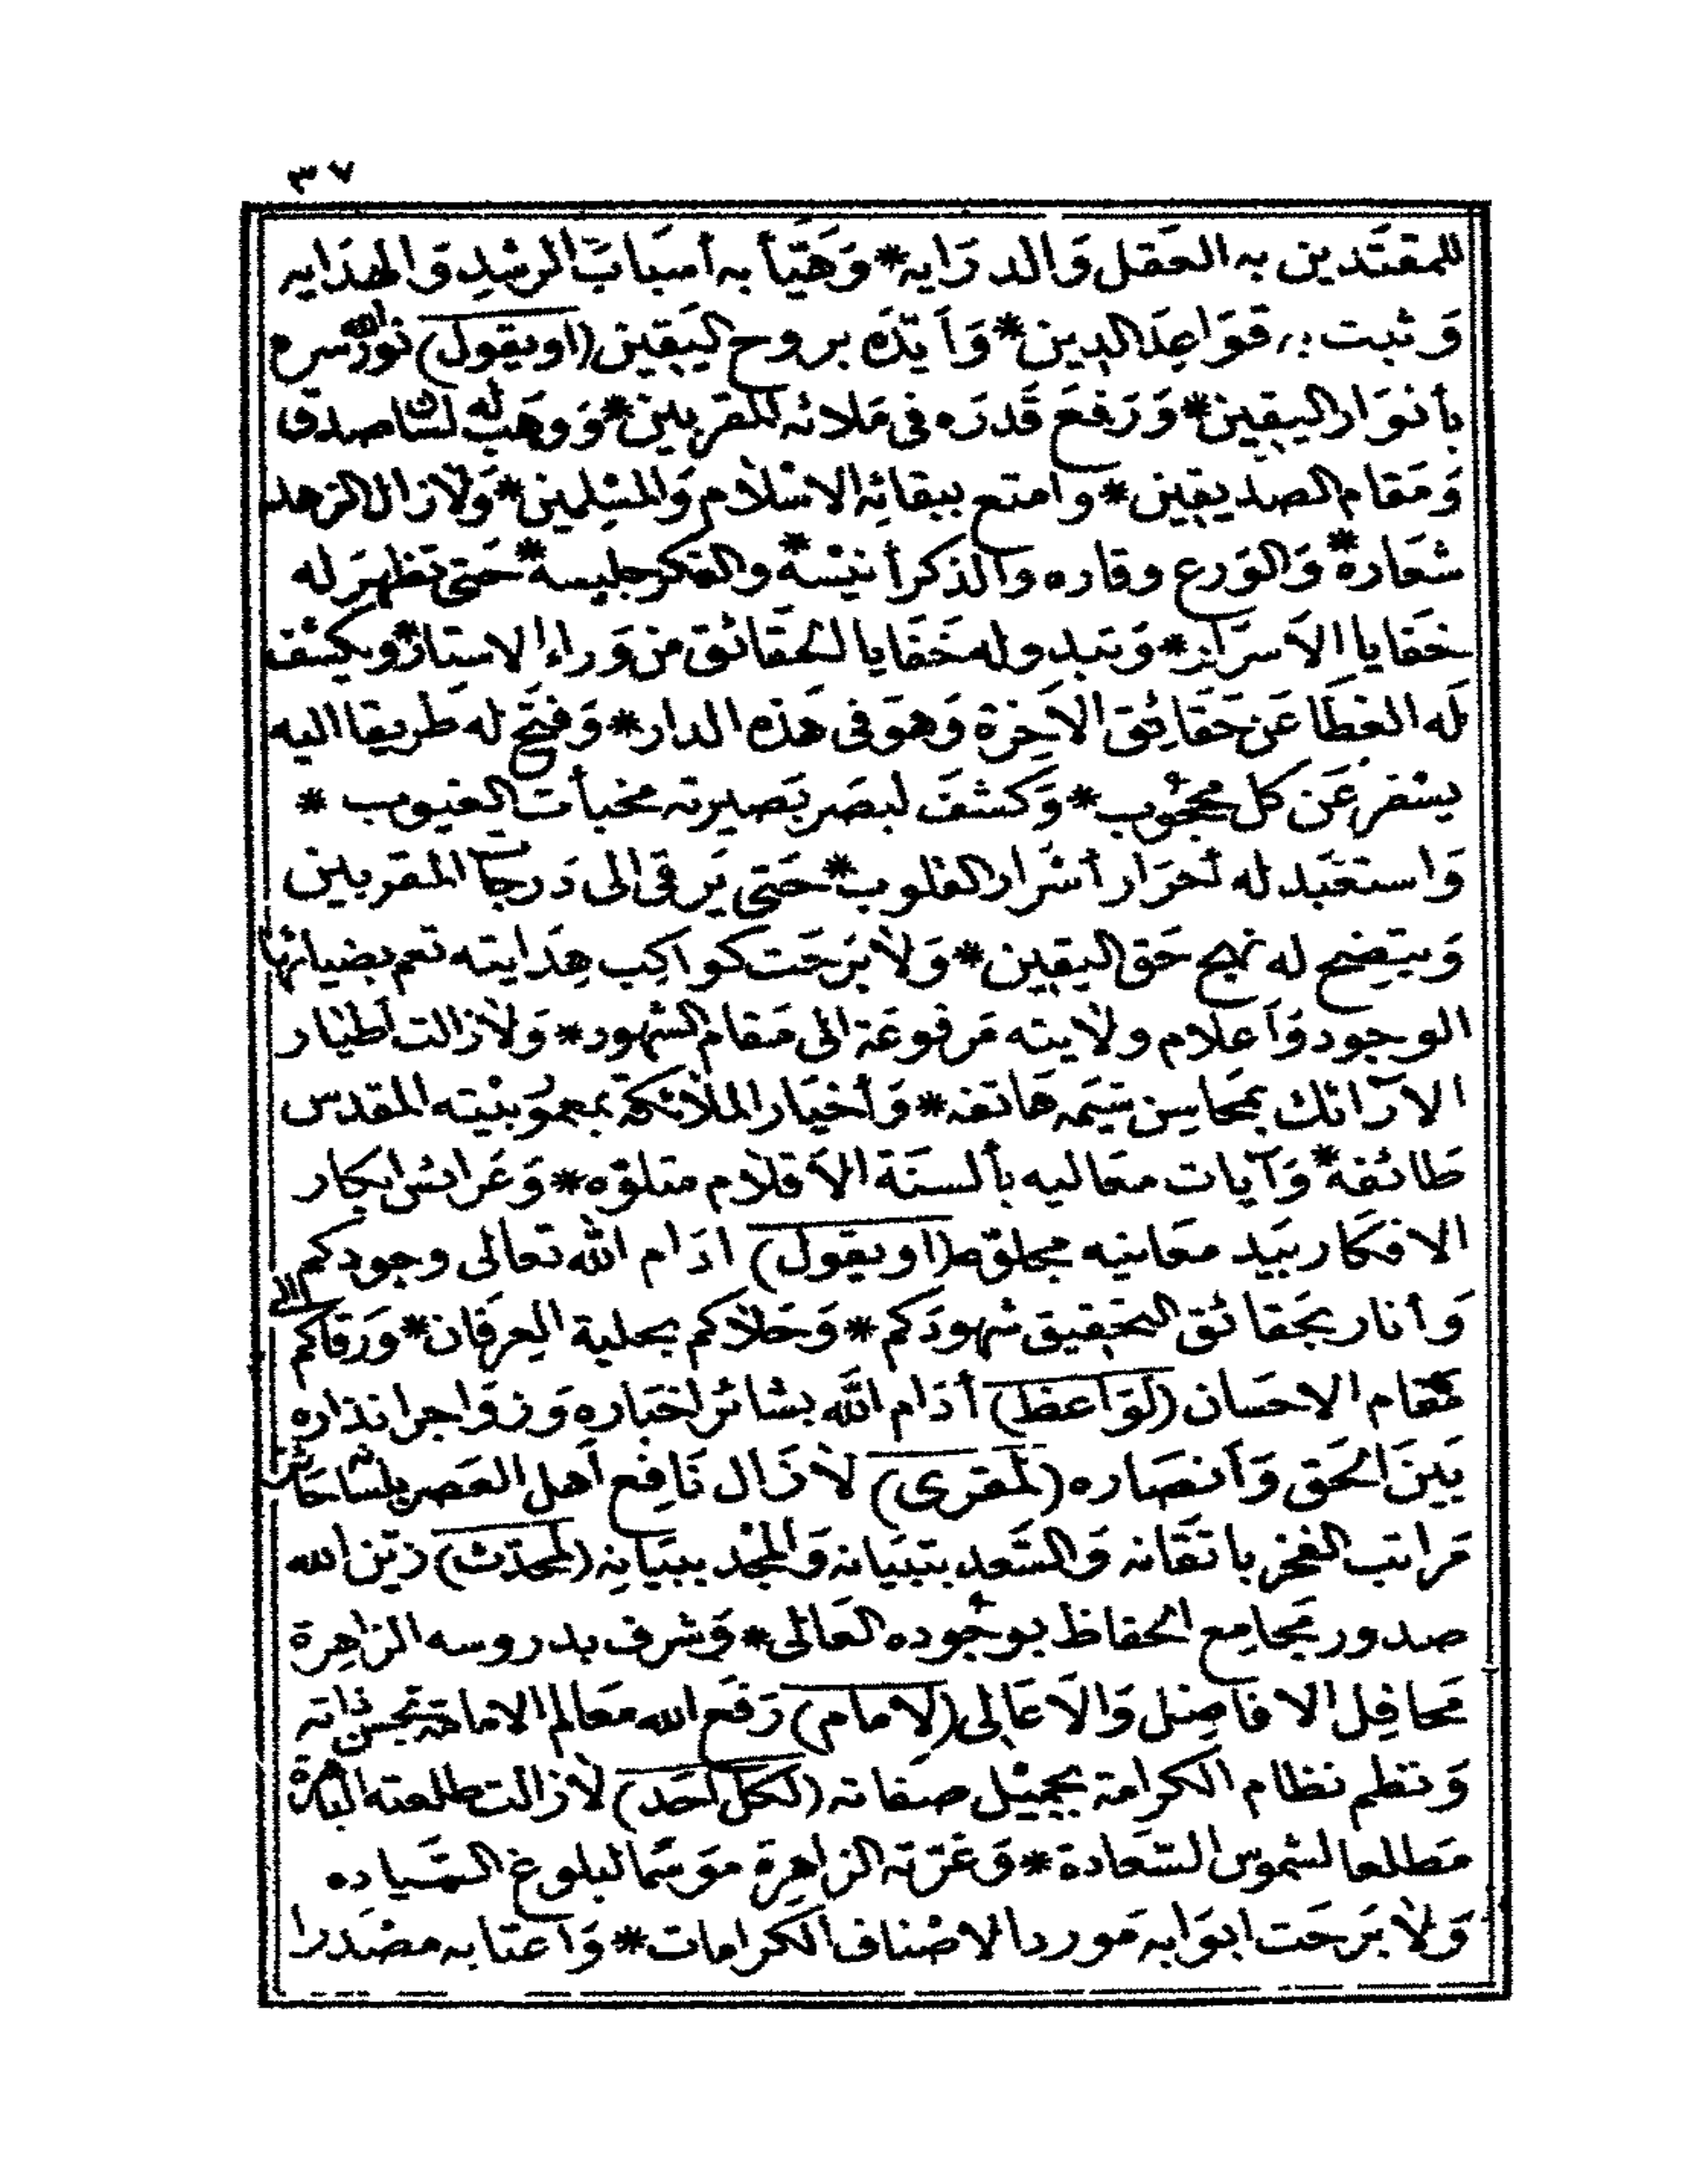 ٣٧
للمقتدين به العقل وَالدرَايه * وَهَيَّأ به أسبَابَ الرشدِ وَالهدَايه
وَثبت به قوَاعِدَ الدين * وَأيّدَه بروح اليَقين (او يقول) نوّر الله سره
بأنوَار اليقين * وَرَفعَ قَدرَه في مَلائه المقربين * وَوَهَب له لسَان صدق
وَمَقام الصديقين * وامتع ببقائِه الاسْلام وَالمسْلمين * وَلازال الزهد
شعَاره * وَالوَرع وقاره والذكر أنيسه * والفكر جليسه * حَتى تظهرَ له
خفَايا الاَسرَار * وَتبدو له خَفَايا الحقَائق من وَراء الاستار * ويكشف
لَه الغطَا عَن حَقَائِق الاَخِرَة وَهوَ في هَذه الدار * وَفتح له طريقا اليه
يسْفر عَن كل محجُوب * وَكشفَ لبصَر بَصيرته مخبأت الغيوب *
وَاستعبَد له أحرَار أسْرار القلوب * حَتى يَرقى الى دَرجات المقربين
وَيتضِح له نهج حَق اليقين * وَلاَ بَرحَت كواكِب هِدَايته تعم بضيائها
الوجود وَأعلام ولايته مَرفوعَة الى مَقام الشهود * وَلازالت أطيَار
الارَائك بمحَاسِن شيَمه هَاتفه * وَأخيَار الملائكة بمعمُوبنيته المقدس
طائفه * وَآيات معَاليه بألسنَة الاَقلام متلوّه * وَعَرائس ابكار
الافكَار بيَد معَانيه مجلوّه (او يقول) ادَام الله تعالى وجودكم
وَأنار بحَقائق التحقيق شهودَكم * وَحَلاّكم بحلية العِرفَان * وَرَقاكم الى
مَقام الاحسَان (لوَاعظ) أدَام الله بشائر اخبَاره وَزوَاجر انذاره
بَينَ الحَق وَأنصَاره (لمقرى) لاَزَال نَافِع أهل العَصر بلسَانه حَائز
مَراتب الفخر باتقَانه وَالسَّعد بتبيَانه وَالمجْد ببيَانِه (لمحدّث) زيّن الله
صدور مَجامِع الحفاظ بوجُوده العَالى * وَشرف بدروسه الزاهِرة
مَحافِل الافاضِل وَالاَعَالِى (لامام) رَفَع الله معَالم الامامَة بحسن ذاته
وَنظم نظام الكرامة بجميْل صفَاته (لكل أحَد) لازالت طلعته البَاهرة
مَطلعا لشموس السّعَادة * وَغرّته الزاهِرة موَسمَا لبلوغ السّيَاده
وَلاَ بَرحَت ابوَابه مَوردا لاصْناف الكرامات * وَاعتابه مصْدرا